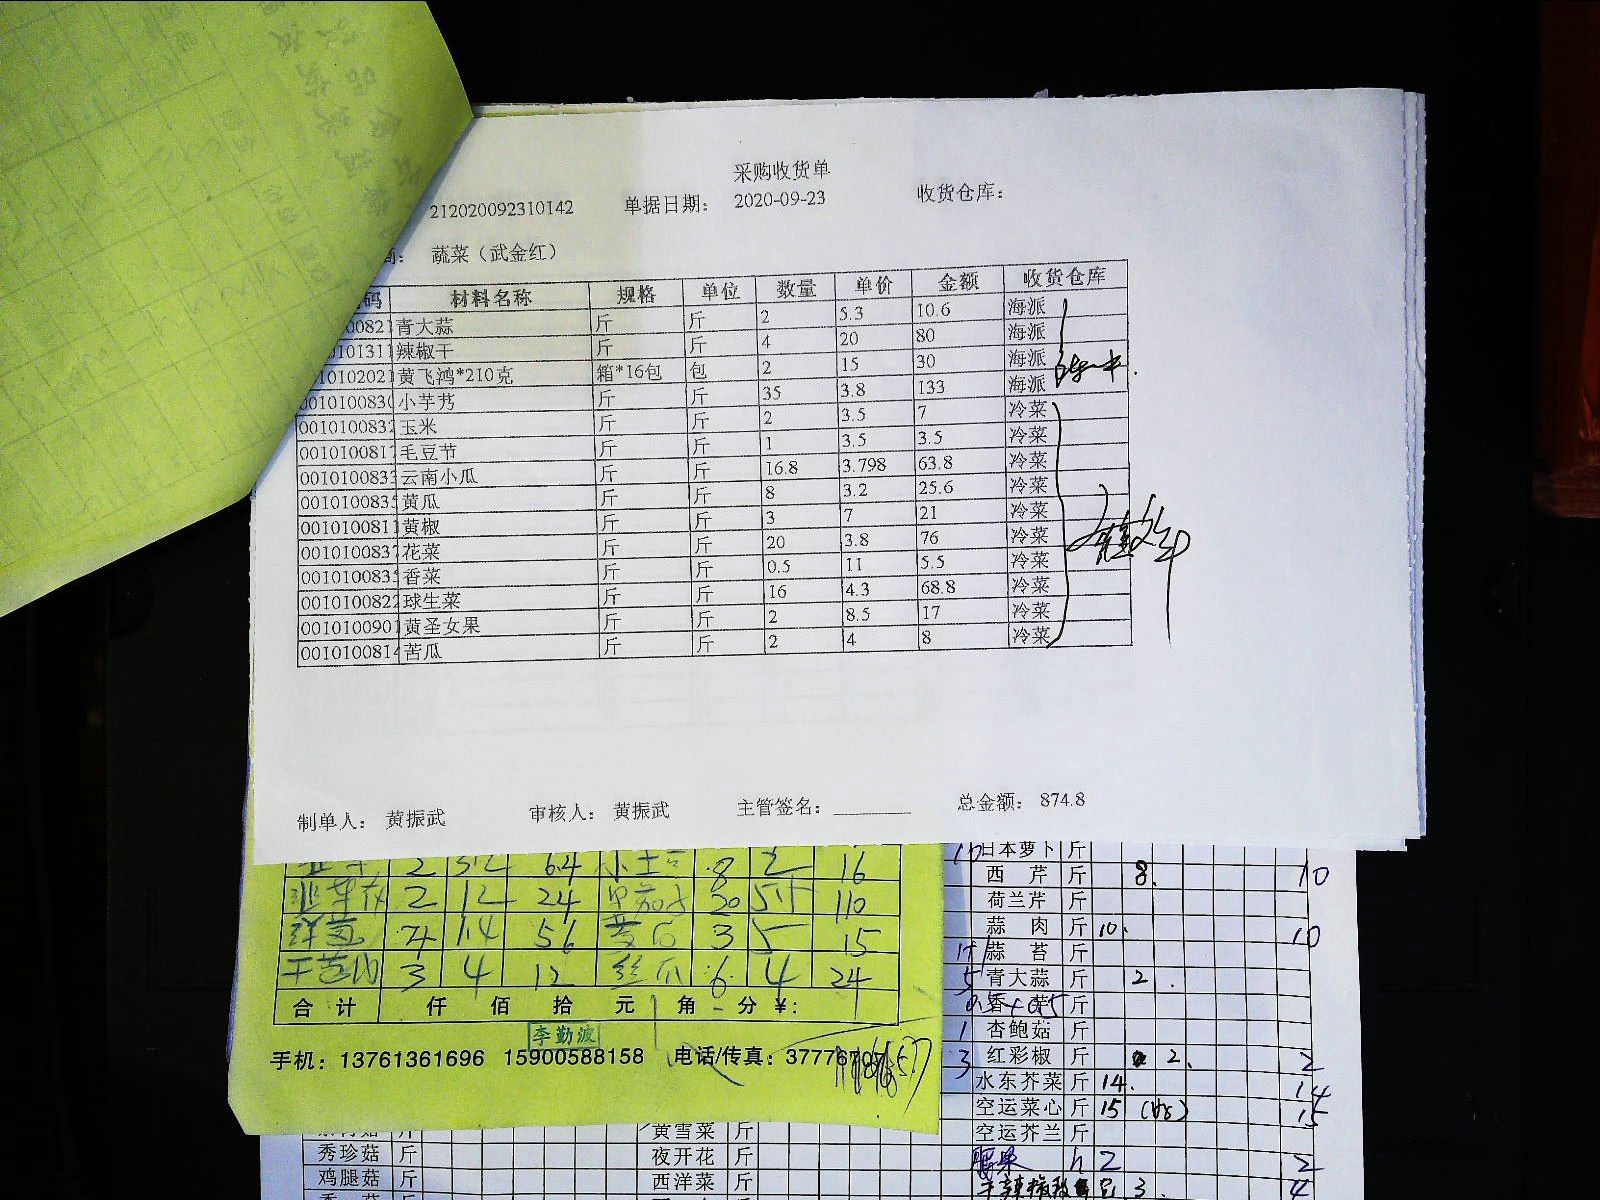 采购收货单
212020092310142 单据日期: 2020-09-23 收货仓库:
商: 蔬菜（武金红）
码 材料名称 规格 单位 数量 单价 金额 收货仓库
00821 青大蒜 斤 斤 2 5.3 10.6 海派
0101311 辣椒干 斤 斤 4 20 80 海派
10102021 黄飞鸿*210克 箱*16包 包 2 15 30 海派
001010083 小芋艿 斤 斤 35 3.8 133 海派
001010083 玉米 斤 斤 2 3.5 7 冷菜
0010100817 毛豆节 斤 斤 1 3.5 3.5 冷菜
001010083 云南小瓜 斤 斤 16.8 3.798 63.8 冷菜
001010083 黄瓜 斤 斤 8 3.2 25.6 冷菜
0010100811 黄椒 斤 斤 3 7 21 冷菜
0010100837 花菜 斤 斤 20 3.8 76 冷菜
001010083 香菜 斤 斤 0.5 11 5.5 冷菜
001010082 球生菜 斤 斤 16 4.3 68.8 冷菜
0010100901 黄圣女果 斤 斤 2 8.5 17 冷菜
001010081 苦瓜 斤 斤 2 4 8 冷菜
制单人: 黄振武 审核人: 黄振武 主管签名: 总金额: 874.8
2 3.2 6.4 8 2 16
韭芽 2 12 24 20 5.5 110
洋葱 4 1.4 5.6 3 5 15
3 4 12 丝瓜 6 4 24
合计 仟 佰 拾 元 角 分 ¥:
李勤波
手机: 13761361696 15900588158 电话/传真: 3777
日本萝卜 斤
西芹 斤 8. 10
荷兰芹 斤
蒜肉 斤 10. 10
蒜苔 斤
5 青大蒜 斤 2.
香菜 斤
1 杏鲍菇 斤
3 红彩椒 斤 2. 2
水东芥菜 斤 14. 14
空运菜心 斤 15 15
空运芥兰 斤
腰果 2 2
3. 4
黄雪菜 斤
秀珍菇 斤 夜开花 斤
鸡腿菇 斤 西洋菜 斤